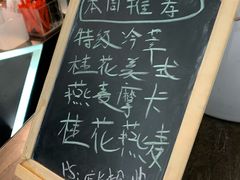 本周推荐
特级冷萃
桂花美式
燕麦摩卡
桂花燕麦